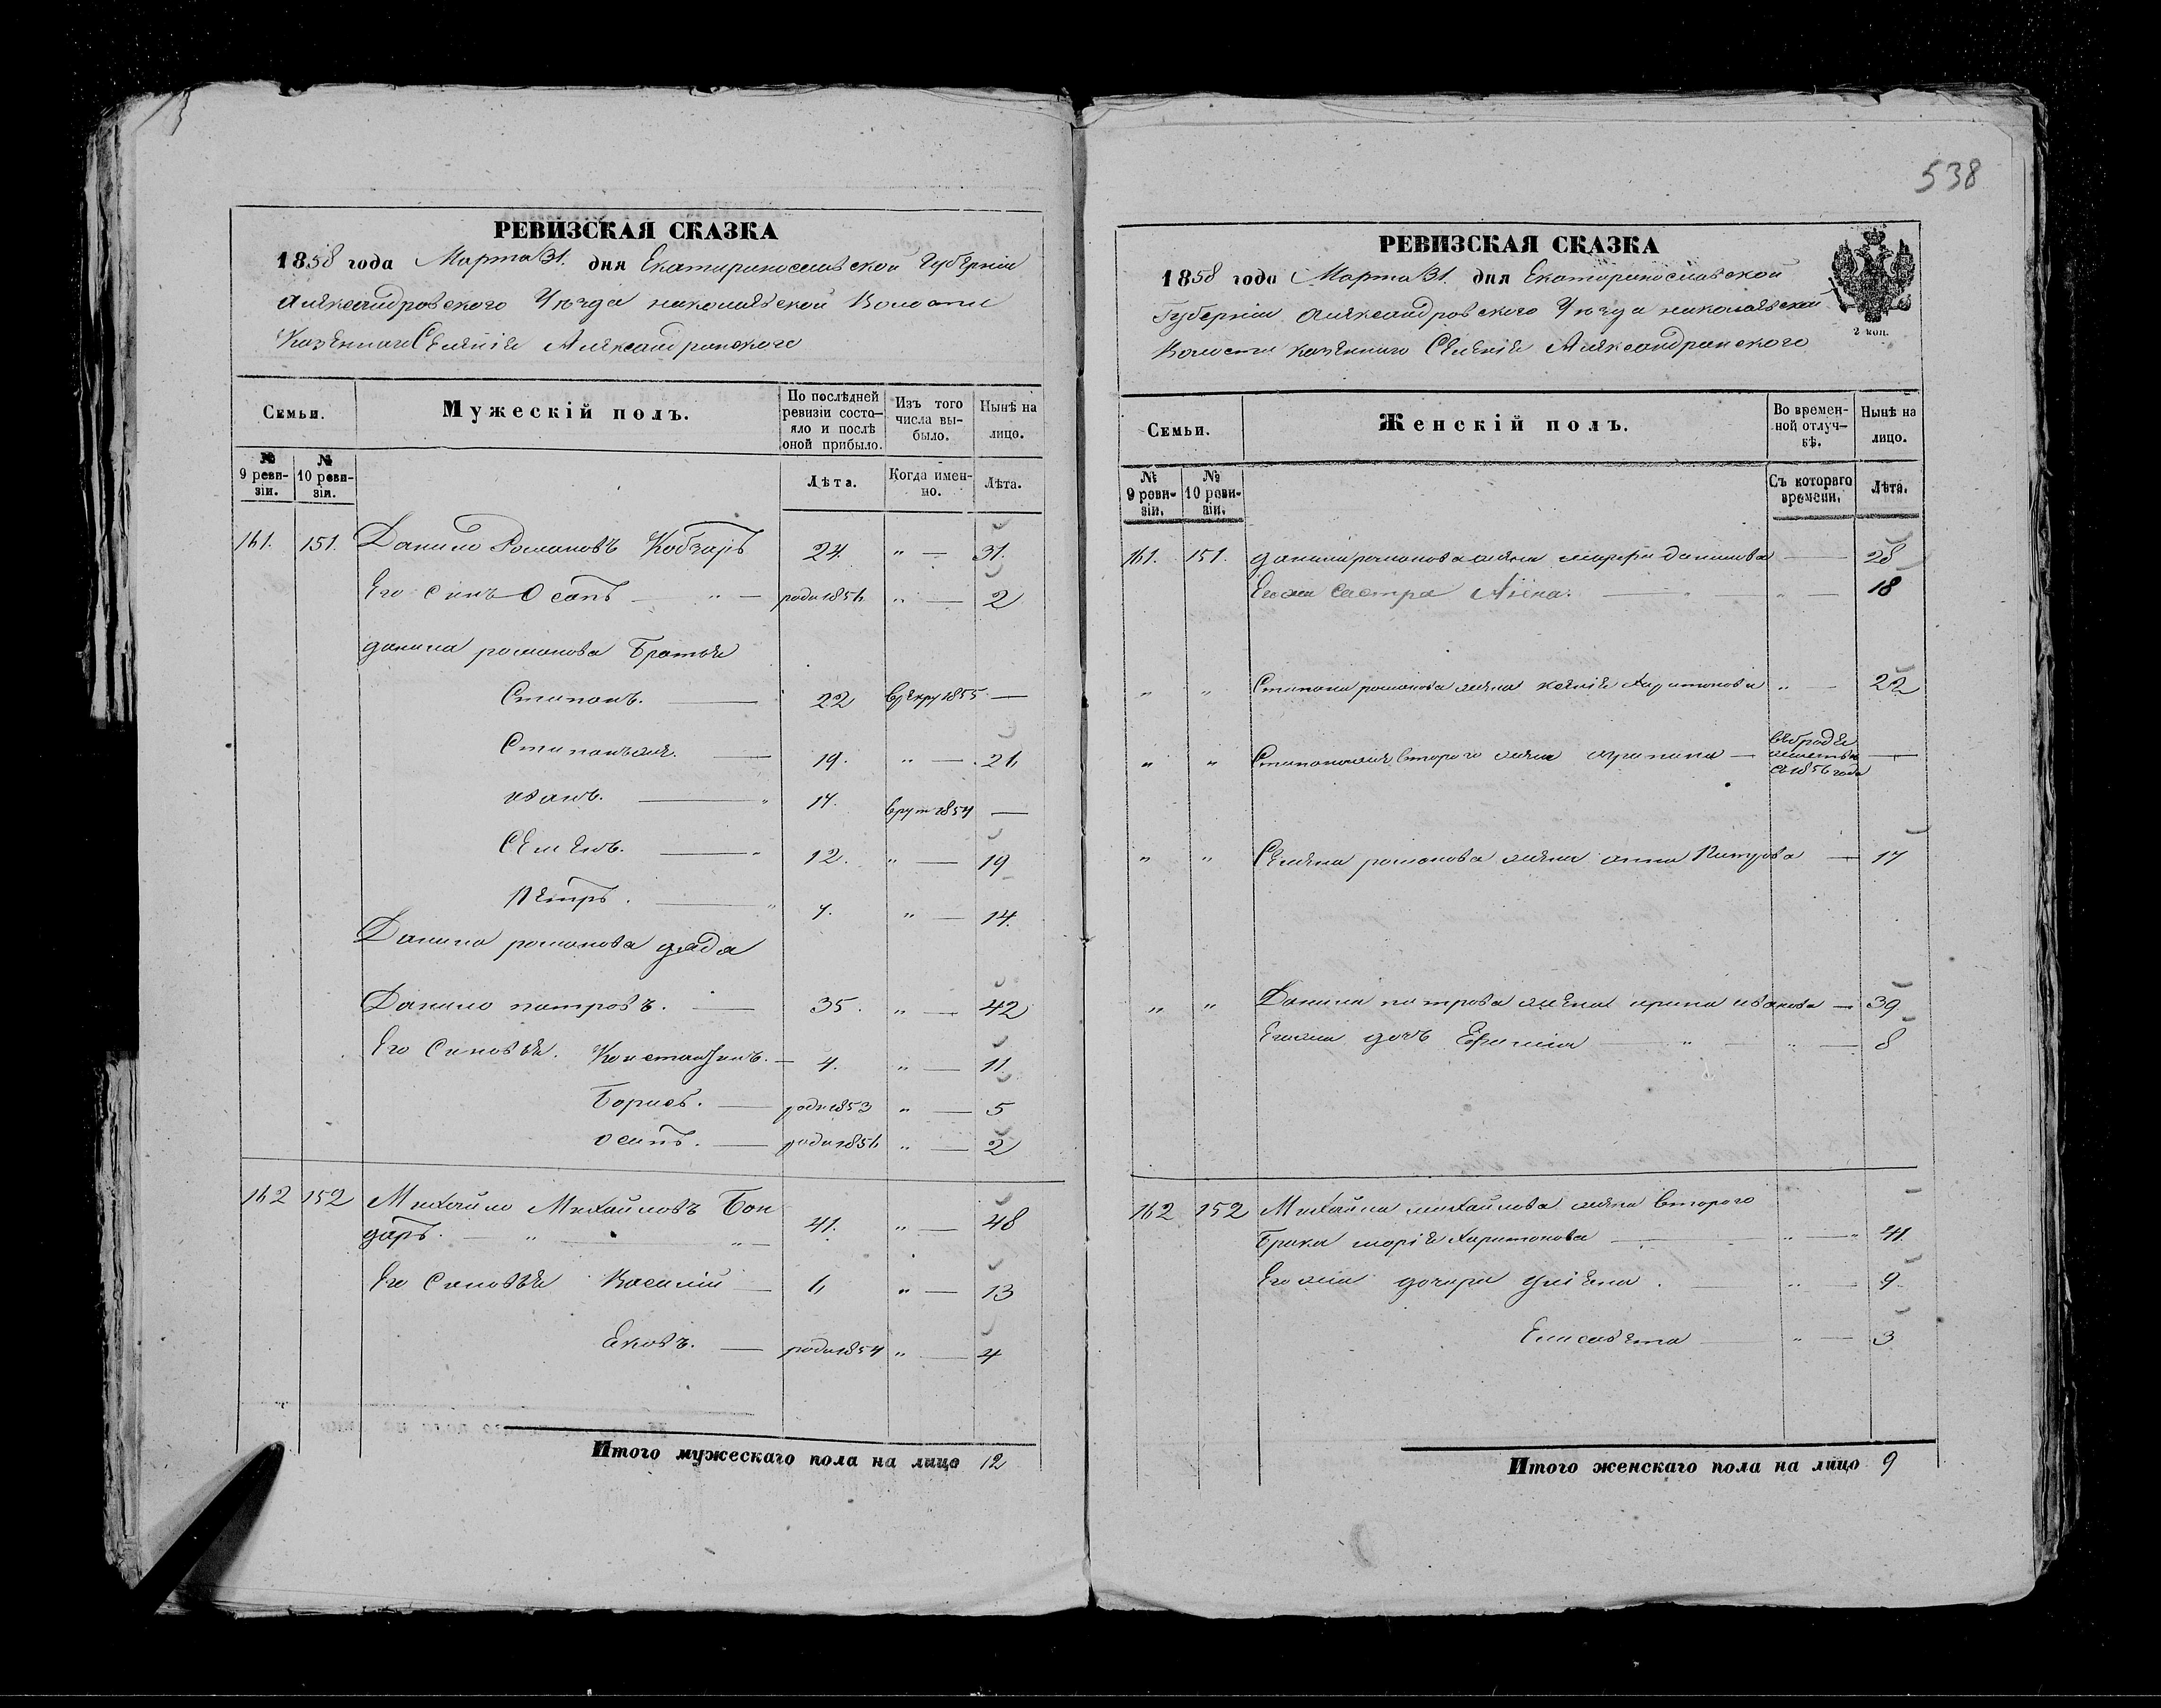 538
РЕВИЗСКАЯ СКАЗКА
1858 года Марта 31. дня Екатириносливской Губерніи
Аляксандровского Уезда николаевской Волости
Казенного Селеніе Аляксандринского
Семьи.
Мужескій полъ.
По послѣдней ревизіи состояло и послѣ оной прибыло.
Изъ того числа выбыло.
Нынѣ на лицо.
№ 9 ревизіи.
№ 10 ревизіи.
Лѣта.
Когда именно.
Лѣта.
161. 151. Данило Романовъ Кобзарь 24 " — 31.
Его синъ Осапъ — " — роди 1856 " — 2
данила романова Братья
Стипанъ. — 22 в рекру 1855 —
Стипанъ же. — 19. " — 21
иванъ. — " 17. в рут 1854 —
Семенъ. — " 12. " — 19
Петръ. — " 7. " — 14.
Данила романова дядя
Данило патровъ. — 35. " — 42
Его Синовья. Константинъ. — 4. " — 11
Борисъ. — роди 1853 " — 5
осипъ. — роди 1856 " — 2
162 152 Михайло Михайловъ Бон
даръ. — " " — 41. " — 48
Его Синовья Василий — 6 " — 13
Яковъ. — роди 1854 " — 4
Итого мужескаго пола на лицо 12
РЕВИЗСКАЯ СКАЗКА
1858 года Марта 31. дня Екатириносливской
Губерніи Аляксандровского Уезда николаевской
Волости казенного Селеніе Аляксандринского
2 коп.
Семьи.
Женскій полъ.
Во временной отлучкѣ.
Нынѣ на лицо.
№ 9 ревизіи.
№ 10 ревизіи.
Съ котораго времени.
Лѣта.
161. 151. данила романова жена марфа данилова — 28
Его же састра Анна. — " — 18
" " Стипана романова жена Харитонова " — 22
" " Стипана же второго жена — с 1856 года —
" " Семена романова жена анна Питрова — 17
" " Данила питрова жена ирина иванова — 39
Его же дочь Ефимия — " — " — 8
162 152 Михайла михайлова жена второго
Брака маріе Харитонова — " — " 41.
Его же дочери улiена. — " — 9
Елисавета — " — 3
Итого женскаго пола на лицо 9